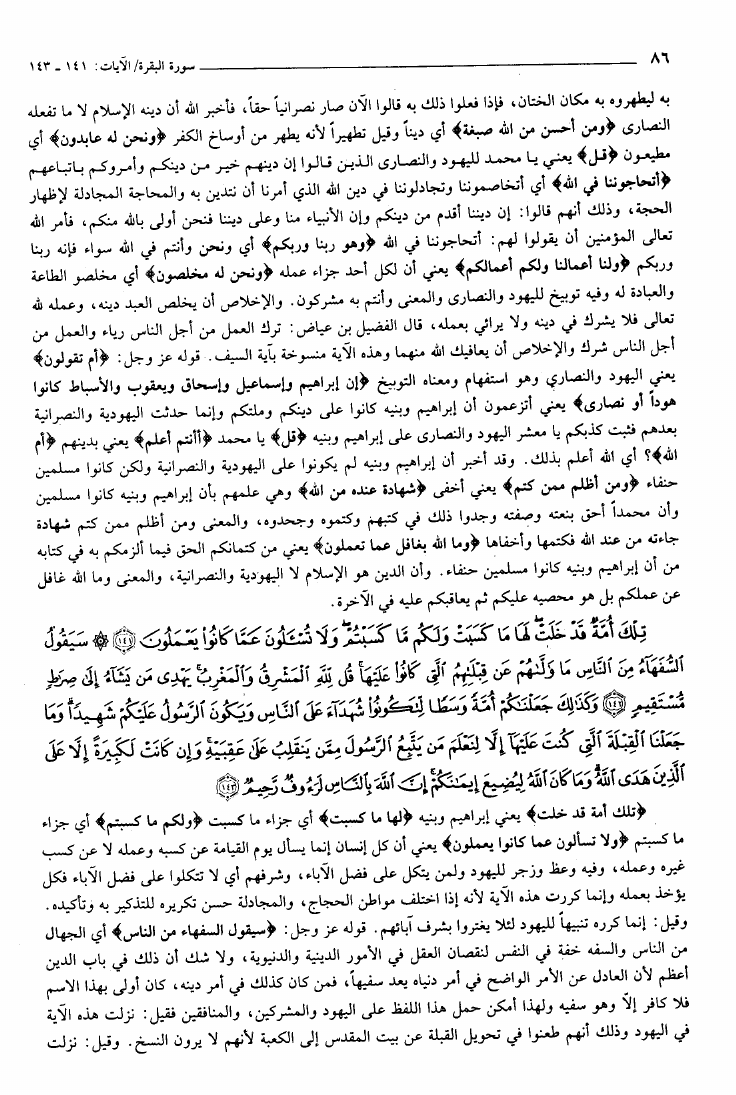 ٨٦ سورة البقرة/ الآيات: ١٤١ - ١٤٣
به ليطهروه به مكان الختان، فإذا فعلوا ذلك به قالوا الآن صار نصرانياً حقاً، فأخبر الله أن دينه الإسلام لا ما تفعله
النصارى ﴿ومن أحسن من الله صبغة﴾ أي ديناً وقيل تطهيراً لأنه يطهر من أوساخ الكفر ﴿ونحن له عابدون﴾ أي
مطيعون ﴿قل﴾ يعني يا محمد لليهود والنصارى الذين قالوا إن دينهم خير من دينكم وأمروكم باتباعهم
﴿أتحاجوننا في الله﴾ أي أتخاصموننا وتجادلوننا في دين الله الذي أمرنا أن نتدين به والمحاجة المجادلة لإظهار
الحجة، وذلك أنهم قالوا: إن ديننا أقدم من دينكم وإن الأنبياء منا وعلى ديننا فنحن أولى بالله منكم، فأمر الله
تعالى المؤمنين أن يقولوا لهم: أتحاجوننا في الله ﴿وهو ربنا وربكم﴾ أي ونحن وأنتم في الله سواء فإنه ربنا
وربكم ﴿ولنا أعمالنا ولكم أعمالكم﴾ يعني أن لكل أحد جزاء عمله ﴿ونحن له مخلصون﴾ أي مخلصو الطاعة
والعبادة له وفيه توبيخ لليهود والنصارى والمعنى وأنتم به مشركون. والإخلاص أن يخلص العبد دينه، وعمله لله
تعالى فلا يشرك في دينه ولا يرائي بعمله، قال الفضيل بن عياض: ترك العمل من أجل الناس رياء والعمل من
أجل الناس شرك والإخلاص أن يعافيك الله منهما وهذه الآية منسوخة بآية السيف. قوله عز وجل: ﴿أم تقولون﴾
يعني اليهود والنصارى وهو استفهام ومعناه التوبيخ ﴿إن إبراهيم وإسماعيل وإسحاق ويعقوب والأسباط كانوا
هوداً أو نصارى﴾ يعني أتزعمون أن إبراهيم وبنيه كانوا على دينكم وملتكم وإنما حدثت اليهودية والنصرانية
بعدهم فثبت كذبكم يا معشر اليهود والنصارى على إبراهيم وبنيه ﴿قل﴾ يا محمد ﴿أأنتم أعلم﴾ يعني بدينهم ﴿أم
الله﴾؟ أي الله أعلم بذلك. وقد أخبر أن إبراهيم وبنيه لم يكونوا على اليهودية والنصرانية ولكن كانوا مسلمين
حنفاء ﴿ومن أظلم ممن كتم﴾ يعني أخفى ﴿شهادة عنده من الله﴾ وهي علمهم بأن إبراهيم وبنيه كانوا مسلمين
وأن محمداً أحق بنعته وصفته وجدوا ذلك في كتبهم وكتموه وجحدوه، والمعنى ومن أظلم ممن كتم شهادة
جاءته من عند الله فكتمها وأخفاها ﴿وما الله بغافل عما تعملون﴾ يعني من كتمانكم الحق فيما ألزمكم به في كتابه
من أن إبراهيم وبنيه كانوا مسلمين حنفاء. وأن الدين هو الإسلام لا اليهودية والنصرانية، والمعنى وما الله غافل
عن عملكم بل هو محصيه عليكم ثم يعاقبكم عليه في الآخرة.
تِلْكَ أُمَّةٌ قَدْ خَلَتْ لَهَا مَا كَسَبَتْ وَلَكُم مَّا كَسَبْتُمْ وَلَا تُسْـَٔلُونَ عَمَّا كَانُوا۟ يَعْمَلُونَ ﴿١٤١﴾ ۞ سَيَقُولُ
ٱلسُّفَهَآءُ مِنَ ٱلنَّاسِ مَا وَلَّىٰهُمْ عَن قِبْلَتِهِمُ ٱلَّتِى كَانُوا۟ عَلَيْهَا قُل لِّلَّهِ ٱلْمَشْرِقُ وَٱلْمَغْرِبُ يَهْدِى مَن يَشَآءُ إِلَىٰ صِرَٰطٍ
مُّسْتَقِيمٍ ﴿١٤٢﴾ وَكَذَٰلِكَ جَعَلْنَٰكُمْ أُمَّةً وَسَطًا لِّتَكُونُوا۟ شُهَدَآءَ عَلَى ٱلنَّاسِ وَيَكُونَ ٱلرَّسُولُ عَلَيْكُمْ شَهِيدًا وَمَا
جَعَلْنَا ٱلْقِبْلَةَ ٱلَّتِى كُنتَ عَلَيْهَآ إِلَّا لِنَعْلَمَ مَن يَتَّبِعُ ٱلرَّسُولَ مِمَّن يَنقَلِبُ عَلَىٰ عَقِبَيْهِ وَإِن كَانَتْ لَكَبِيرَةً إِلَّا عَلَى
ٱلَّذِينَ هَدَى ٱللَّهُ وَمَا كَانَ ٱللَّهُ لِيُضِيعَ إِيمَٰنَكُمْ إِنَّ ٱللَّهَ بِٱلنَّاسِ لَرَءُوفٌ رَّحِيمٌ ﴿١٤٣﴾
﴿تلك أمة قد خلت﴾ يعني إبراهيم وبنيه ﴿لها ما كسبت﴾ أي جزاء ما كسبت ﴿ولكم ما كسبتم﴾ أي جزاء
ما كسبتم ﴿ولا تسألون عما كانوا يعملون﴾ يعني أن كل إنسان إنما يسأل يوم القيامة عن كسبه وعمله لا عن كسب
غيره وعمله، وفيه وعظ وزجر لليهود ولمن يتكل على فضل الآباء، وشرفهم أي لا تتكلوا على فضل الآباء فكل
يؤخذ بعمله وإنما كررت هذه الآية لأنه إذا اختلف مواطن الحجاج، والمجادلة حسن تكريره للتذكير به وتأكيده.
وقيل: إنما كرره تنبيهاً لليهود لئلا يغتروا بشرف آبائهم. قوله عز وجل: ﴿سيقول السفهاء من الناس﴾ أي الجهال
من الناس والسفه خفة في النفس لنقصان العقل في الأمور الدينية والدنيوية، ولا شك أن ذلك في باب الدين
أعظم لأن العادل عن الأمر الواضح في أمر دنياه يعد سفيهاً، فمن كان كذلك في أمر دينه، كان أولى بهذا الاسم
فلا كافر إلّا وهو سفيه ولهذا أمكن حمل هذا اللفظ على اليهود والمشركين، والمنافقين فقيل: نزلت هذه الآية
في اليهود وذلك أنهم طعنوا في تحويل القبلة عن بيت المقدس إلى الكعبة لأنهم لا يرون النسخ. وقيل: نزلت